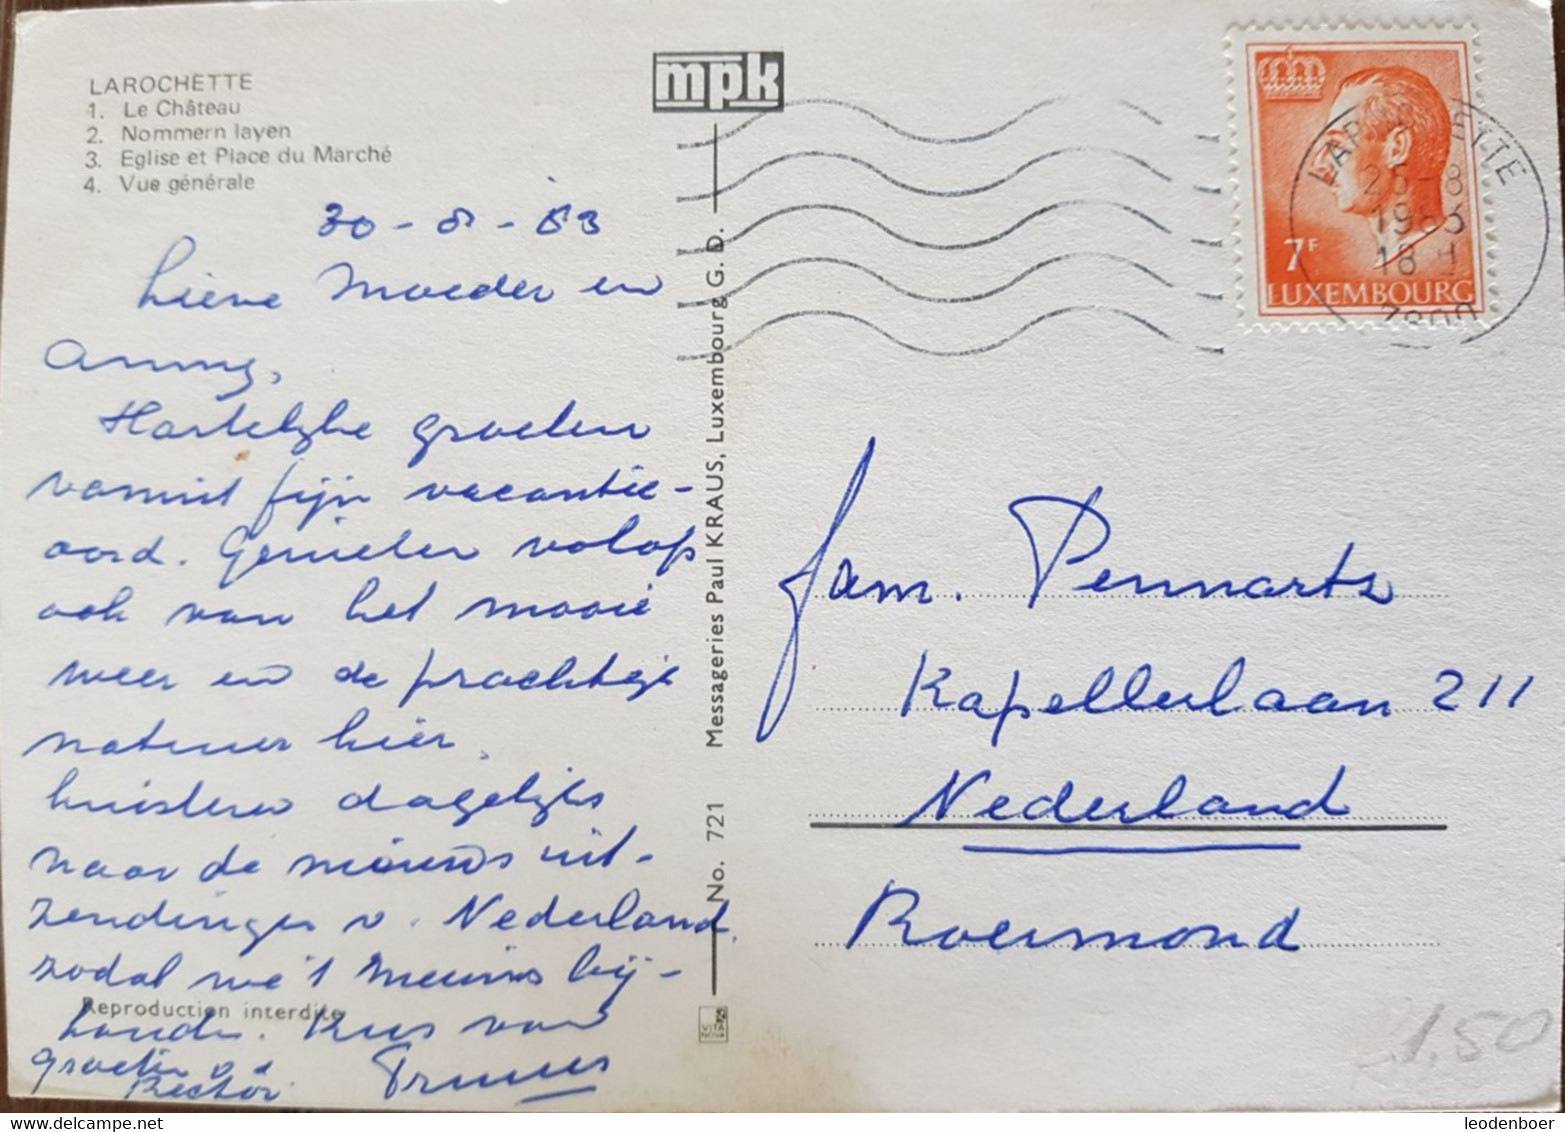 LAROCHETTE
1. Le Château
2. Nommern layen
3. Eglise et Place du Marché
4. Vue générale
30-8-83
Lieve Moeder en
Anny,
Hartelijke groeten
vanuit fijn vacantie-
oord. Genieten volop
ook van het mooie
weer en de prachtige
natuur hier.
Luisteren dagelijks
naar de nieuws uit-
zendingen v. Nederland.
zodat we 't nieuws bij-
houden. Kus van
Groeten v d
Rector.
Truus
Reproduction interdite
mpk
No. 721 Messageries Paul KRAUS, Luxembourg G. D.
7F
LUXEMBOURG
25-8
18 H
Fam. Pennarts
Kapellerlaan 211
Nederland
Roermond
1,50
leodenboer